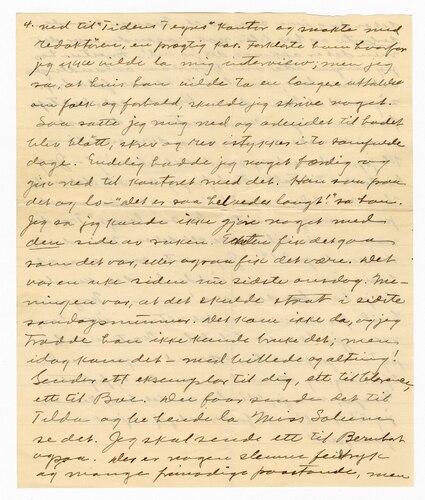 4. ned til "Tidens Tegns" kontor og snakte med
redaktøren, en prægtig kar. Forklarte ham hvorfor
jeg ikke vilde la mig interviewe; men jeg
sa, at hvis han vilde ta en længere uttalelse
om folk og forhold, skulde jeg skrive noget.
Saa satte jeg mig ned og arbeidet til hodet
blev blått, skrev og rev istykker i to samfulde
dage. Endelig hadde jeg noget færdig og
gik ned til kontoret med det. Han saa paa
det og lo - "Det er saa helvedes langt!" sa han.
Jeg sa jeg kunde ikke gjøre noget med
den side av saken. Enten fik det gaa
som det var, eller ogsaa fik det være. Det
var en uke siden nu sidste onsdag. Me-
ningen var, at det skulde staat i sidste
søndagsnummer. Det kom ikke da, og jeg
trodde han ikke kunde bruke det; men
idag kom det - med billede og alting!
Sender ett eksemplar til dig, ett til
ett til Boe. Du faar sende det til
Tilda og be hende la Miss Solum
se det. Jeg skal sende ett til
ogsaa. Der er nogen slemme feiltryk
og mange paastande, men